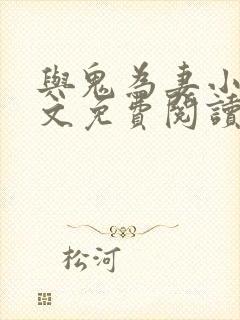 與鬼為妻小
文免費閱讀
松河